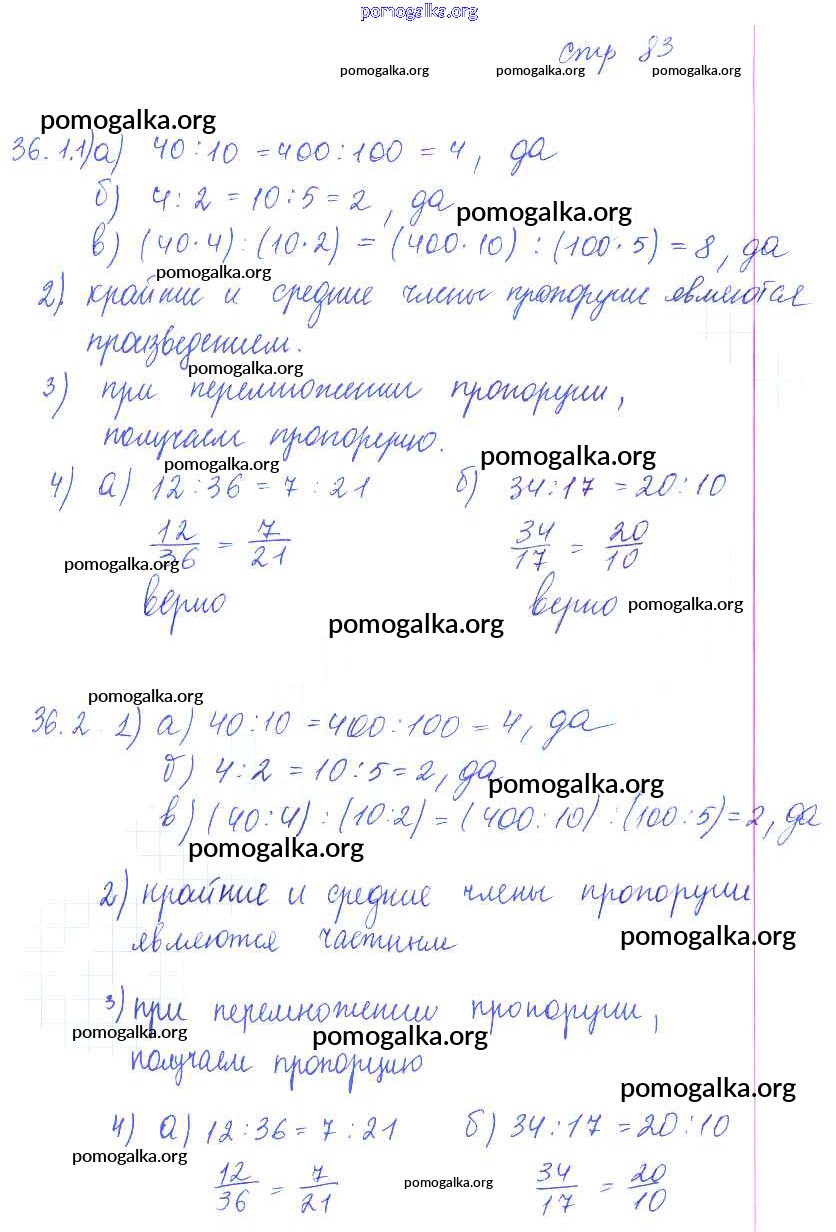 pomogalka.org
стр 83
pomogalka.org pomogalka.org pomogalka.org
pomogalka.org
36.1.1) а) 40 : 10 = 400 : 100 = 4, да
б) 4 : 2 = 10 : 5 = 2, да
pomogalka.org
в) (40 · 4) : (10 · 2) = (400 · 10) : (100 · 5) = 8, да
pomogalka.org
2) крайние и средние члены пропорции являются
произведением.
pomogalka.org
3) при перемножении пропорции,
получаем пропорцию.
pomogalka.org pomogalka.org
4) а) 12 : 36 = 7 : 21 б) 34 : 17 = 20 : 10
12/36 = 7/21 34/17 = 20/10
pomogalka.org
верно верно
pomogalka.org
pomogalka.org
pomogalka.org
36.2 1) а) 40 : 10 = 400 : 100 = 4, да
б) 4 : 2 = 10 : 5 = 2, да
pomogalka.org
в) (40 : 4) : (10 : 2) = (400 : 10) : (100 : 5) = 2, да
pomogalka.org
2) крайние и средние члены пропорции
являются частными
pomogalka.org
3) при перемножении пропорции,
pomogalka.org pomogalka.org
получаем пропорцию
pomogalka.org
4) а) 12 : 36 = 7 : 21 б) 34 : 17 = 20 : 10
pomogalka.org
12/36 = 7/21 34/17 = 20/10
pomogalka.org